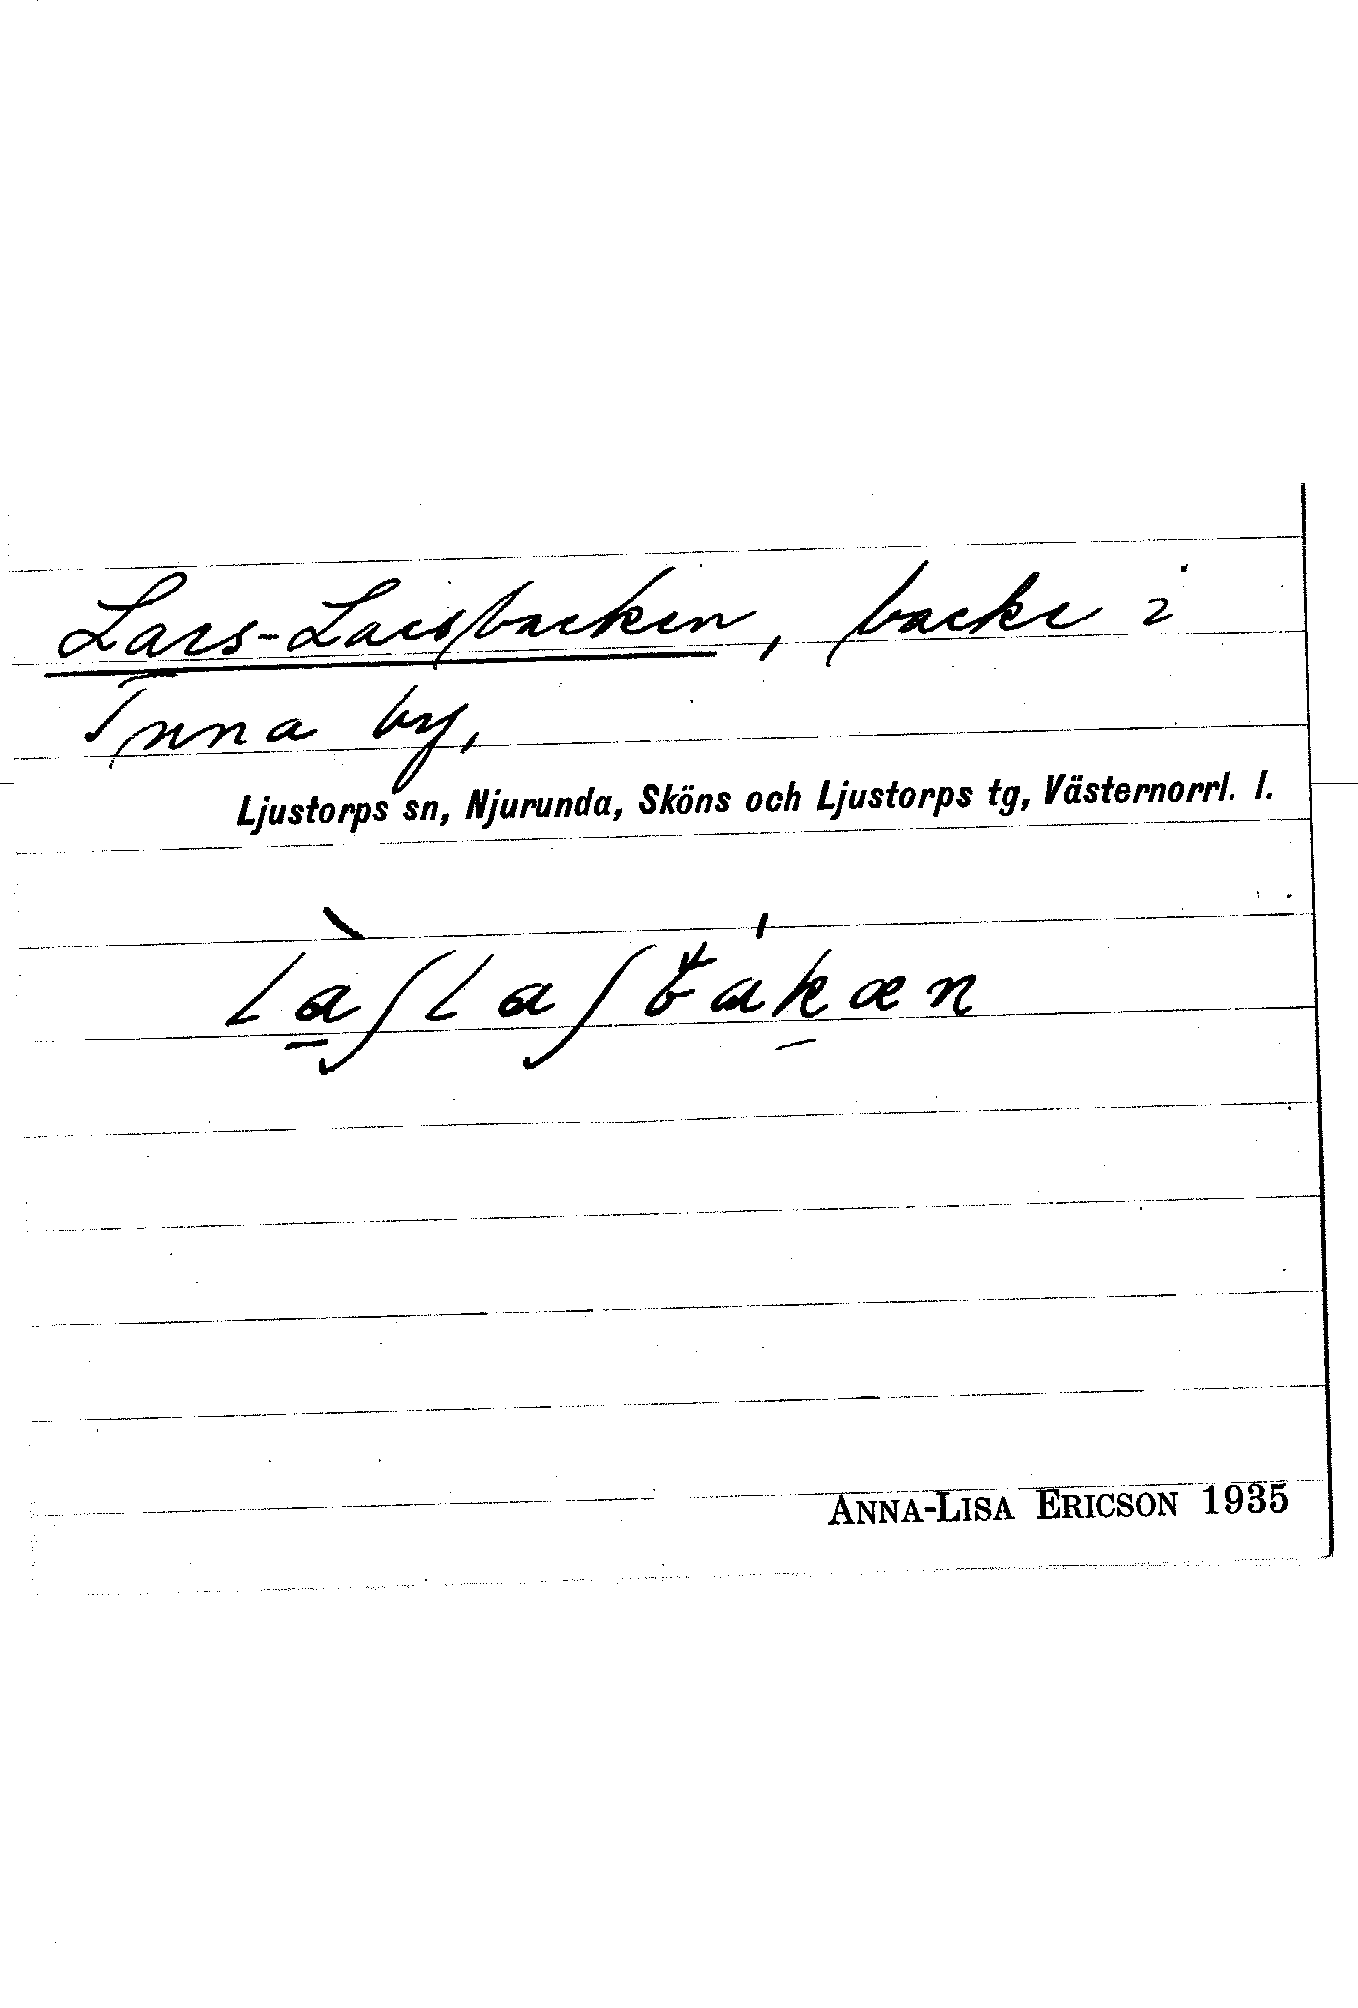 Lars-Larsbacken, backe i
Inna by,
Ljustorps sn, Njurunda, Sköns och Ljustorps tg, Västernorrl. l.
ANNA-LISA ERICSON 1935